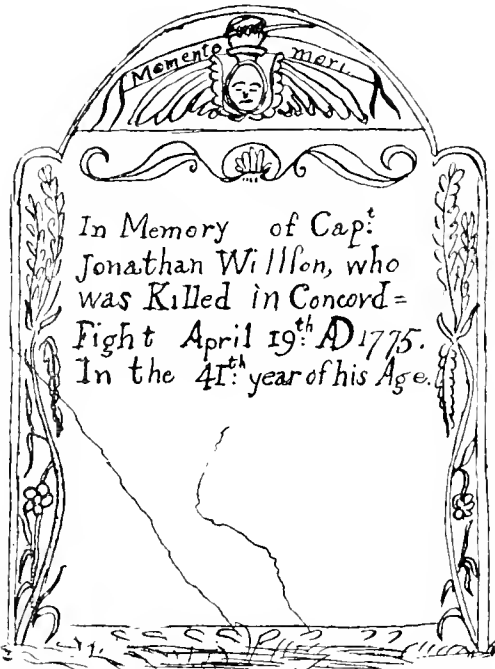 Memento mori.
In Memory of Capt.
Jonathan Willſon, who
was Killed in Concord=
Fight April 19th. AD 1775.
In the 41th. year of his Age.